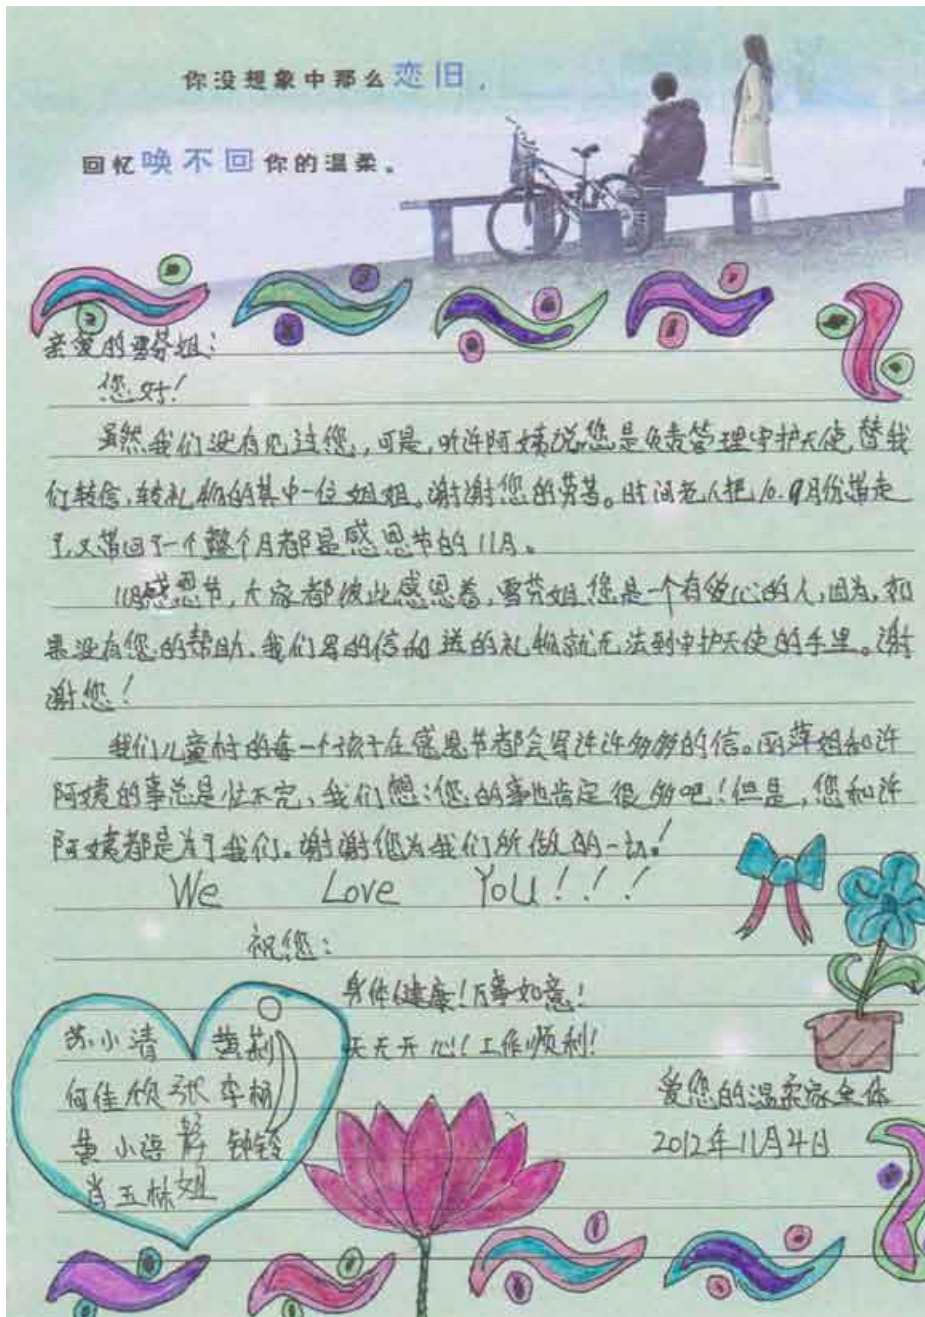 你没想象中那么恋旧,
回忆唤不回你的温柔。
亲爱的雪芬姐:
您好!
虽然我们没有见过您,可是,听许阿姨说您是负责管理守护天使,替我
们转信,转礼物的其中一位姐姐。谢谢您的劳苦。时间老人把10.9月份带走
了,又带回了一个整个月都是感恩节的11月。
11月感恩节,大家都彼此感恩着,雪芬姐您是一个有爱心的人,因为,如
果没有您的帮助,我们写的信和送的礼物就无法到守护天使的手里。谢
谢您!
我们儿童村的每一个孩子在感恩节都会写许许多多的信。丽萍姐和许
阿姨的事总是忙不完、我们想:您的事也肯定很多吧!但是,您和许
阿姨都是为了我们。谢谢您为我们所做的一切!
We Love You!!!
祝您:
身体健康!万事如意!
天天开心!工作顺利!
苏小清 黄莉
何佳欣 张 李杨
黄小语 静 钟铃
肖玉林 姐
爱您的温柔家全体
2012年11月4日